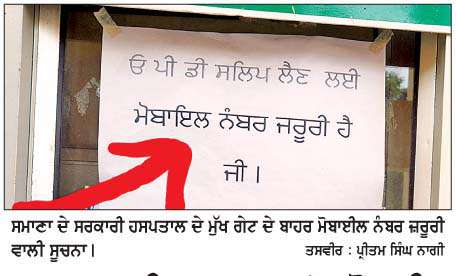 ਓ ਪੀ ਡੀ ਸਲਿਪ ਲੈਣ ਲਈ
ਮੋਬਾਇਲ ਨੰਬਰ ਜਰੂਰੀ ਹੈ
ਜੀ।
ਸਮਾਣਾ ਦੇ ਸਰਕਾਰੀ ਹਸਪਤਾਲ ਦੇ ਮੁੱਖ ਗੇਟ ਦੇ ਬਾਹਰ ਮੋਬਾਈਲ ਨੰਬਰ ਜ਼ਰੂਰੀ
ਵਾਲੀ ਸੂਚਨਾ। ਤਸਵੀਰ : ਪ੍ਰੀਤਮ ਸਿੰਘ ਨਾਗੀ